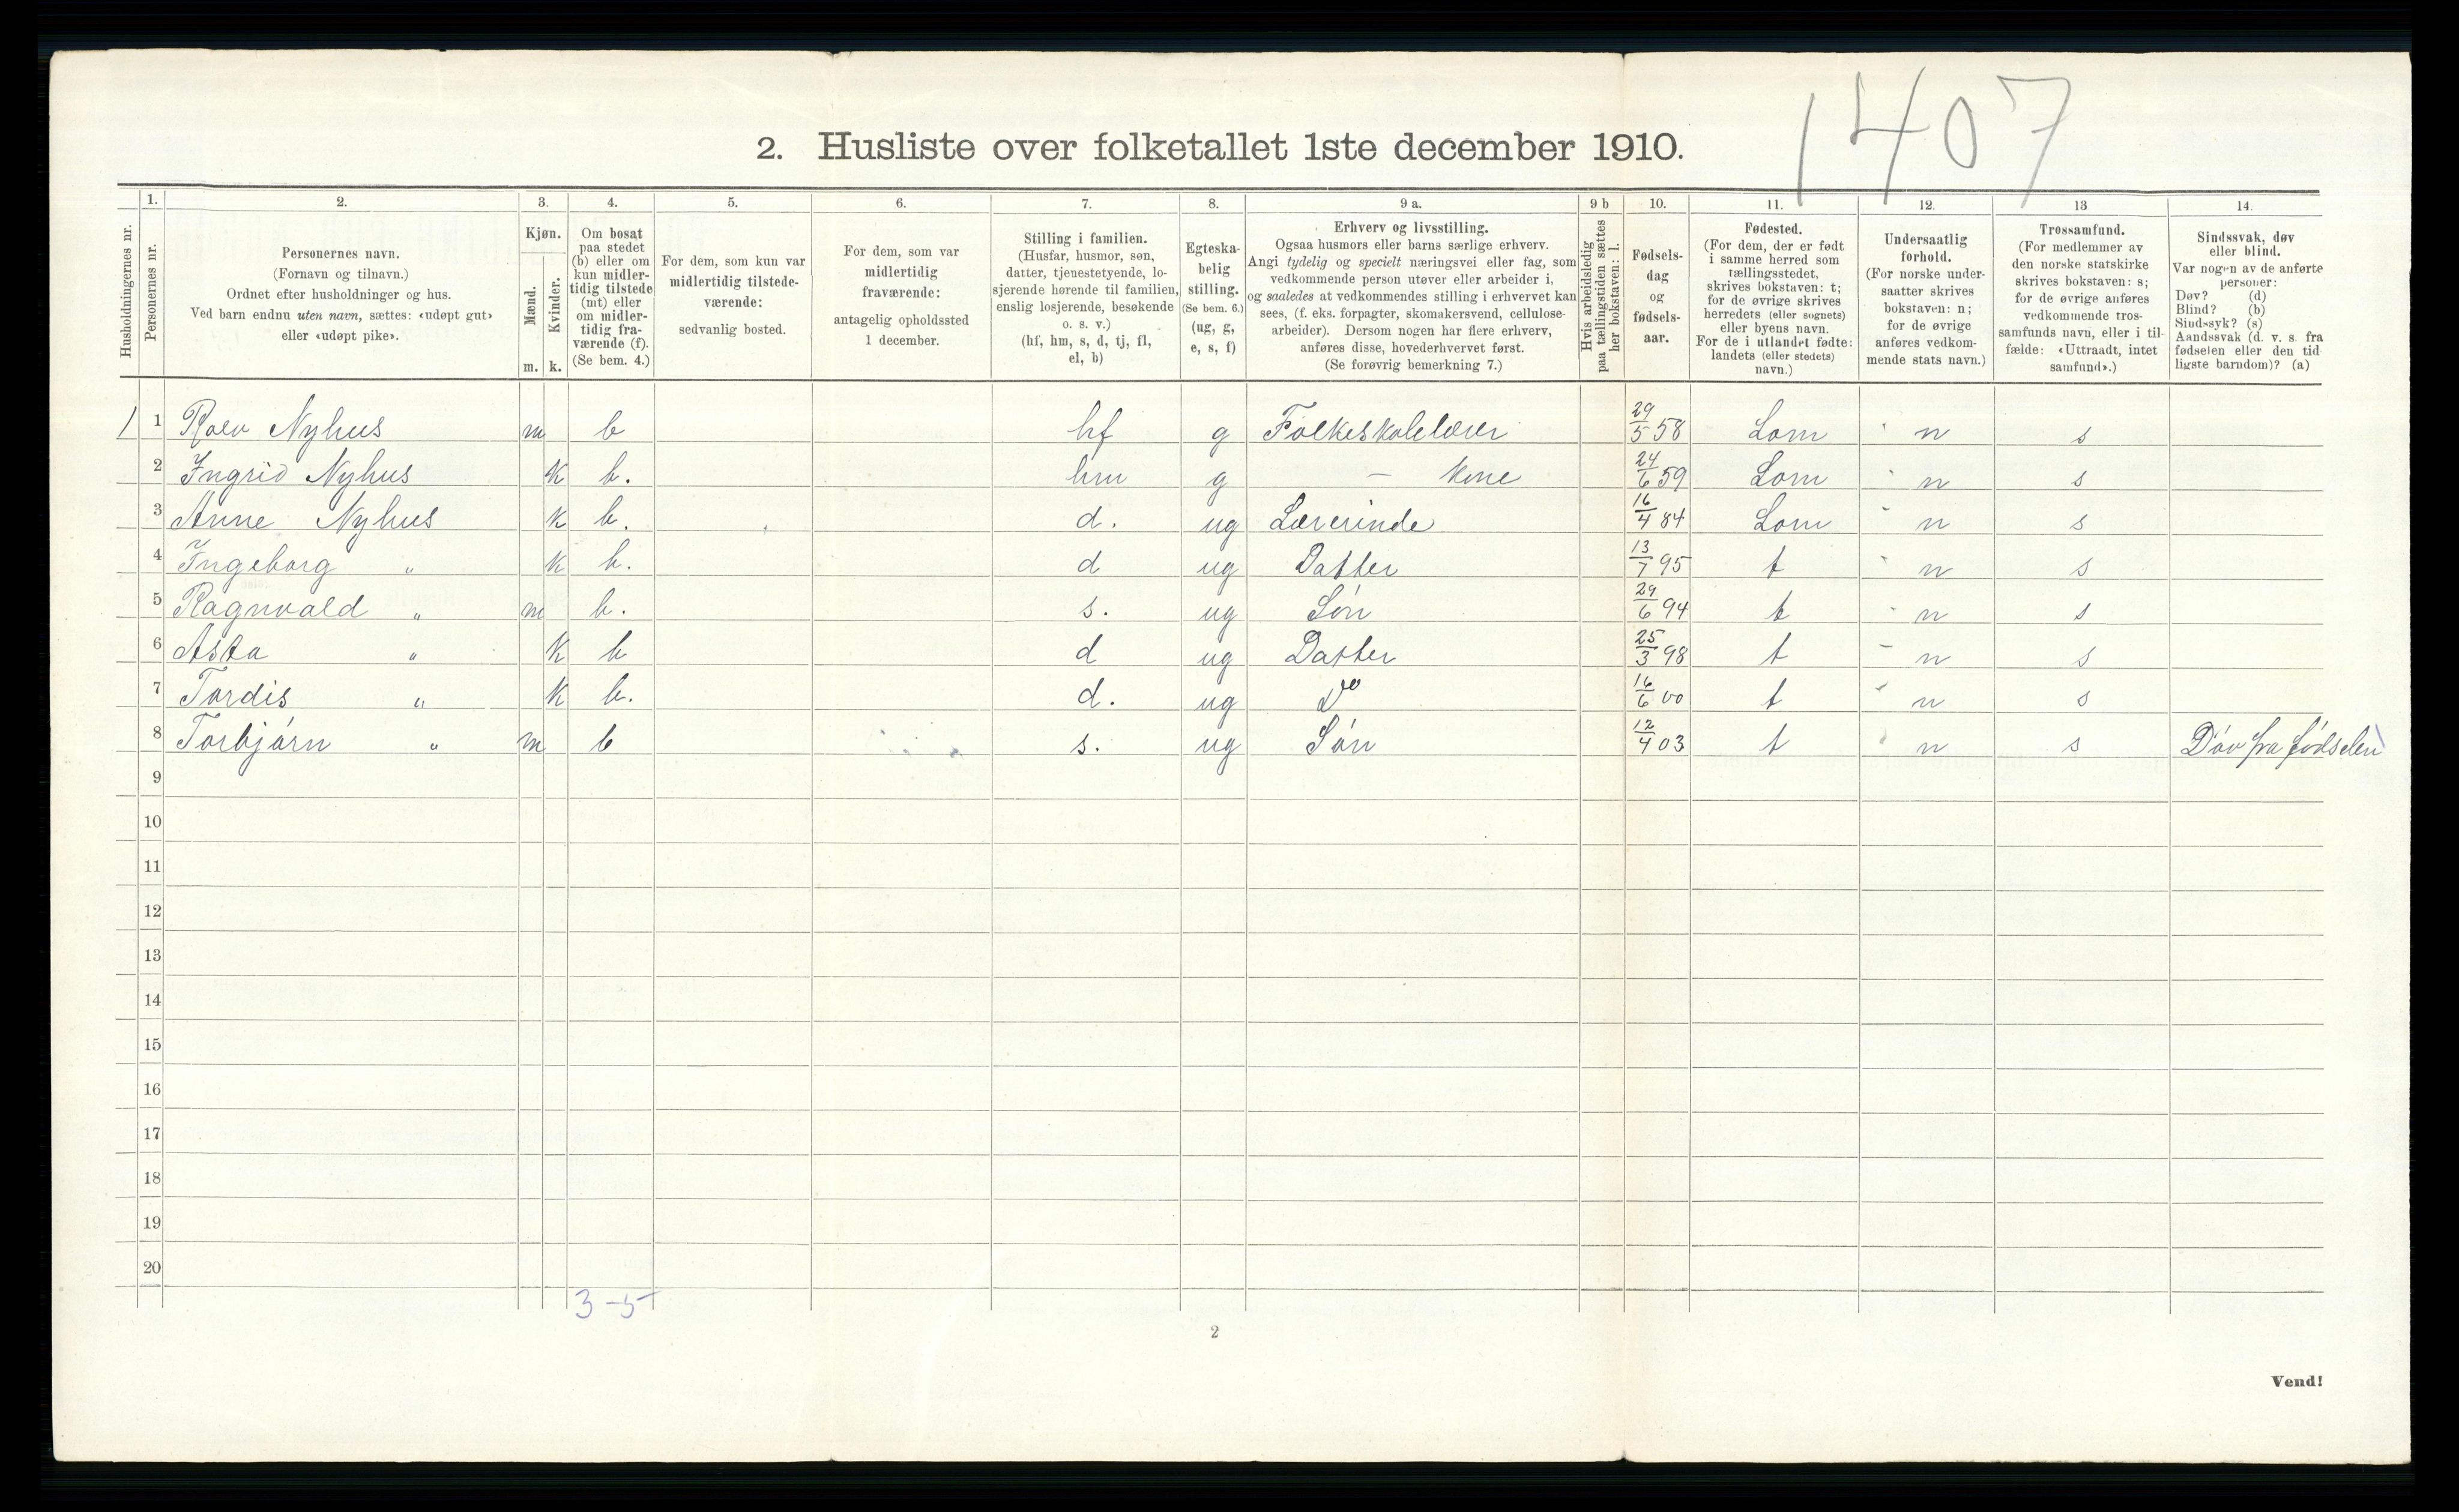 1407
2. Husliste over folketallet 1ste december 1910.
1. 2. 3. 4. 5. 6. 7. 8. 9 a. 9 b 10. 11. 12. 13 14.
Husholdningernes nr.
Personernes nr.
Personernes navn.
(Fornavn og tilnavn.)
Ordnet efter husholdninger og hus.
Ved barn endnu uten navn, sættes: «udøpt gut»
eller «udøpt pike».
Kjøn.
Mænd.
Kvinder.
m. k.
Om bosat
paa stedet
(b) eller om
kun midler-
tidig tilstede
(mt) eller
om midler-
tidig fra-
værende (f).
(Se bem. 4.)
For dem, som kun var
midlertidig tilstede-
værende:
sedvanlig bosted.
For dem, som var
midlertidig
fraværende:
antagelig opholdssted
1 december.
Stilling i familien.
(Husfar, husmor, søn,
datter, tjenestetyende, lo-
sjerende hørende til familien,
enslig losjerende, besøkende
o. s. v.)
(hf, hm, s, d, tj, fl,
el, b)
Egteska-
belig
stilling.
(Se bem. 6.)
(ug, g,
e, s, f)
Erhverv og livsstilling.
Ogsaa husmors eller barns særlige erhverv.
Angi tydelig og specielt næringsvei eller fag, som
vedkommende person utøver eller arbeider i,
og saaledes at vedkommendes stilling i erhvervet kan
sees, (f. eks. forpagter, skomakersvend, cellulose-
arbeider). Dersom nogen har flere erhverv,
anføres disse, hovederhvervet først.
(Se forøvrig bemerkning 7.)
Hvis arbeidsledig
paa tællingstiden sættes
her bokstaven: l.
Fødsels-
dag
og
fødsels-
aar.
Fødested.
(For dem, der er født
i samme herred som
tællingsstedet,
skrives bokstaven: t;
for de øvrige skrives
herredets (eller sognets)
eller byens navn.
For de i utlandet fødte:
landets (eller stedets)
navn.)
Undersaatlig
forhold.
(For norske under-
saatter skrives
bokstaven: n;
for de øvrige
anføres vedkom-
mende stats navn.)
Trossamfund.
(For medlemmer av
den norske statskirke
skrives bokstaven: s;
for de øvrige anføres
vedkommende tros-
samfunds navn, eller i til-
fælde: «Uttraadt, intet
samfund».)
Sindssvak, døv
eller blind.
Var nogen av de anførte
personer:
Døv? (d)
Blind? (b)
Sindssyk? (s)
Aandssvak (d. v. s. fra
fødselen eller den tid
ligste barndom)? (a)
1 1 Rolv Nyhus m b hf g Folkeskolelærer 29/5 58 Lom n s
2 Ingrid Nyhus k b. hm g – kone 24/6 59 Lom n s
3 Anne Nyhus k b. d. ug Lærerinde 16/4 84 Lom n s
4 Ingeborg " k b. d ug Datter 13/7 95 t n s
5 Ragnvald " m b. s. ug Søn 29/6 94 t n s
6 Asta " k b d ug Datter 25/3 98 t n s
7 Tordis " k b. d. ug Do 16/6 00 t n s
8 Torbjørn " m b s. ug Søn 12/4 03 t n s Døv fra fødselen
9
10
11
12
13
14
15
16
17
18
19
20
3-5
2
Vend!